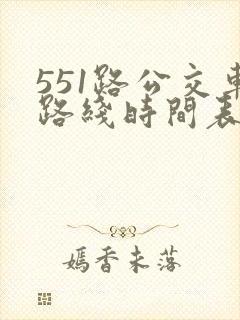 551路公交車
路綫時間表
嫣香未落